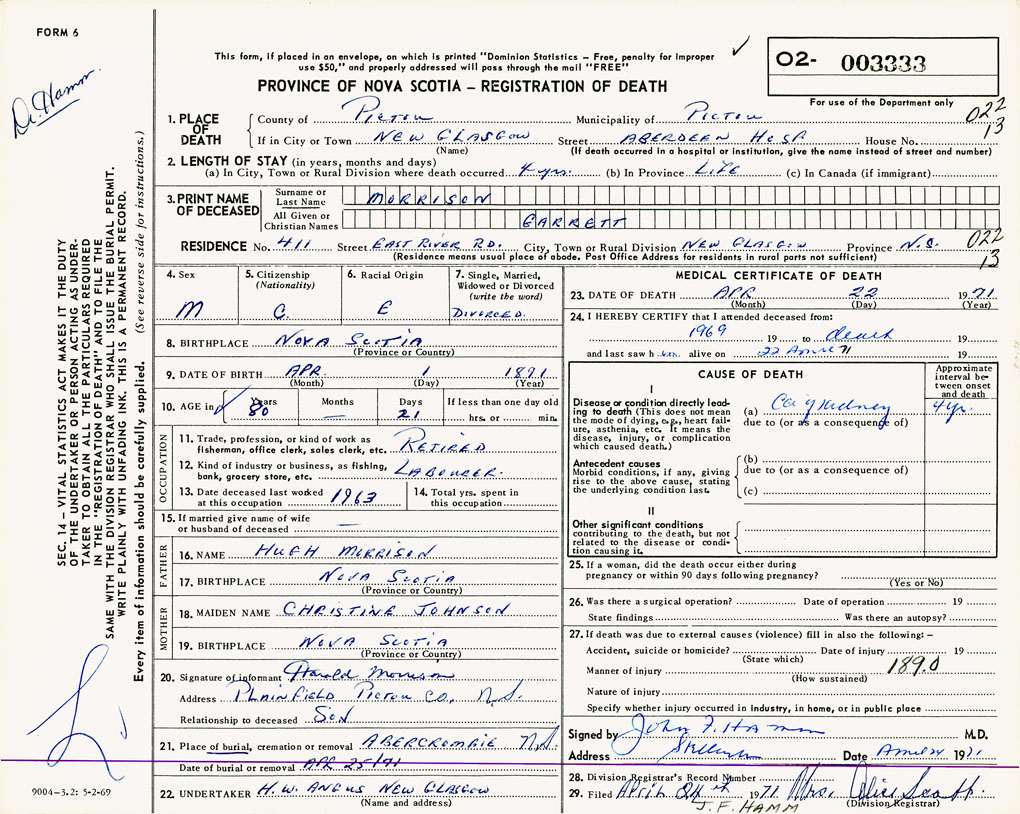 FORM 6
Dr. Hamm.
This form, if placed in an envelope, on which is printed "Dominion Statistics – Free, penalty for Improper
use $50," and properly addressed will pass through the mail "FREE"
PROVINCE OF NOVA SCOTIA – REGISTRATION OF DEATH
02- 003333
For use of the Department only
022
13
1. PLACE OF DEATH
County of Pictou Municipality of Pictou
If in City or Town NEW GLASGOW Street ABERDEEN HOSP House No.
(Name) (If death occurred in a hospital or institution, give the name instead of street and number)
2. LENGTH OF STAY (in years, months and days)
(a) In City, Town or Rural Division where death occurred 4 yrs. (b) In Province LIFE (c) In Canada (if immigrant)
3. PRINT NAME OF DECEASED
Surname or Last Name MORRISON
All Given or Christian Names GARRETT
RESIDENCE No. 411 Street EAST RIVER RD. City, Town or Rural Division NEW GLASGOW Province N.S. 022
(Residence means usual place of abode. Post Office Address for residents in rural parts not sufficient) 13
4. Sex
M
5. Citizenship
(Nationality)
C.
6. Racial Origin
E
7. Single, Married,
Widowed or Divorced
(write the word)
DIVORCED.
8. BIRTHPLACE NOVA SCOTIA
(Province or Country)
9. DATE OF BIRTH APR. 1 1891
(Month) (Day) (Year)
10. AGE in Years Months Days If less than one day old
80 — 21 hrs. or min.
OCCUPATION
11. Trade, profession, or kind of work as
fisherman, office clerk, sales clerk, etc. RETIRED
12. Kind of industry or business, as fishing,
bank, grocery store, etc. LABOURER.
13. Date deceased last worked
at this occupation 1963
14. Total yrs. spent in
this occupation
15. If married give name of wife
or husband of deceased —
FATHER
16. NAME HUGH MORRISON
17. BIRTHPLACE NOVA SCOTIA
(Province or Country)
MOTHER
18. MAIDEN NAME CHRISTINE JOHNSON
19. BIRTHPLACE NOVA SCOTIA
(Province or Country)
20. Signature of informant Harold Morrison
Address PLAINFIELD PICTOU CO., N.S.
Relationship to deceased SON
21. Place of burial, cremation or removal ABERCROMBIE N.S.
Date of burial or removal APR 25/71
22. UNDERTAKER H.W. ANGUS NEW GLASGOW
(Name and address)
MEDICAL CERTIFICATE OF DEATH
23. DATE OF DEATH APR 22 1971
(Month) (Day) (Year)
24. I HEREBY CERTIFY that I attended deceased from:
1969 19 to death 19
and last saw h im alive on 22 April 71 19
CAUSE OF DEATH
Approximate
interval be-
tween onset
and death
I
Disease or condition directly lead-
ing to death (This does not mean
the mode of dying, e.g., heart fail-
ure, asthenia, etc. It means the
disease, injury, or complication
which caused death.)
(a) Ca of Kidney 4 yr.
due to (or as a consequence of)
Antecedent causes
Morbid conditions, if any, giving
rise to the above cause, stating
the underlying condition last.
(b)
due to (or as a consequence of)
(c)
II
Other significant conditions
contributing to the death, but not
related to the disease or condi-
tion causing it.
25. If a woman, did the death occur either during
pregnancy or within 90 days following pregnancy?
(Yes or No)
26. Was there a surgical operation? Date of operation 19
State findings Was there an autopsy?
27. If death was due to external causes (violence) fill in also the following: –
Accident, suicide or homicide? Date of injury 19
(State which)
Manner of injury 189.0
(How sustained)
Nature of injury
Specify whether injury occurred in industry, in home, or in public place
Signed by John F. Hamm M.D.
Address Date April 24 1971
28. Division Registrar's Record Number
29. Filed April 24th 1971 Mrs. Alice Scott.
J. F. HAMM (Division Registrar)
SEC. 14 – VITAL STATISTICS ACT MAKES IT THE DUTY
OF THE UNDERTAKER OR PERSON ACTING AS UNDER-
TAKER TO OBTAIN ALL THE PARTICULARS REQUIRED
IN THE "REGISTRATION OF DEATH" AND TO FILE THE
SAME WITH THE DIVISION REGISTRAR WHO SHALL ISSUE THE BURIAL PERMIT.
WRITE PLAINLY WITH UNFADING INK. THIS IS A PERMANENT RECORD.
Every item of information should be carefully supplied. (See reverse side for instructions.)
9004-3.2: 5-2-69